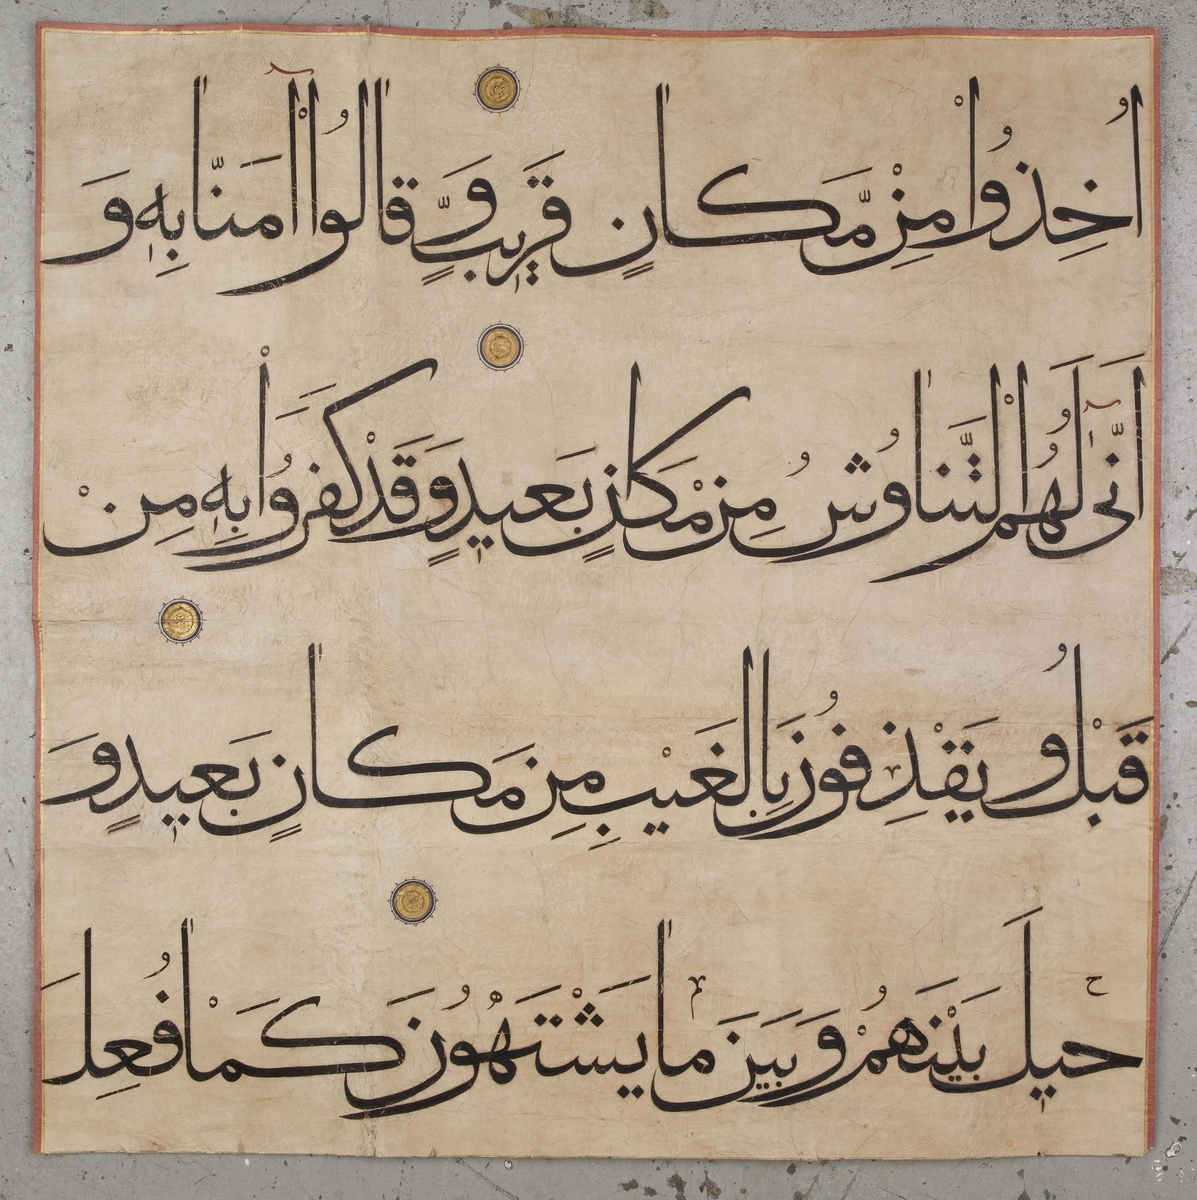 اُخِذُوْا مِنْ مَّكانٍ قَرِيبٍ وَّقالُوْا آمَنّا بِهٖ وَ
اَنّٰى لَهُمُ التَّناوُشُ مِنْ مَكانٍ بَعِيدٍ وَقَدْ كَفَرُوْا بِهٖ مِنْ
قَبْلُ وَيَقْذِفُونَ بِالغَيْبِ مِنْ مَكانٍ بَعِيدٍ وَ
حِيلَ بَيْنَهُمْ وَبَيْنَ ما يَشْتَهُونَ كَمَا فُعِلَ